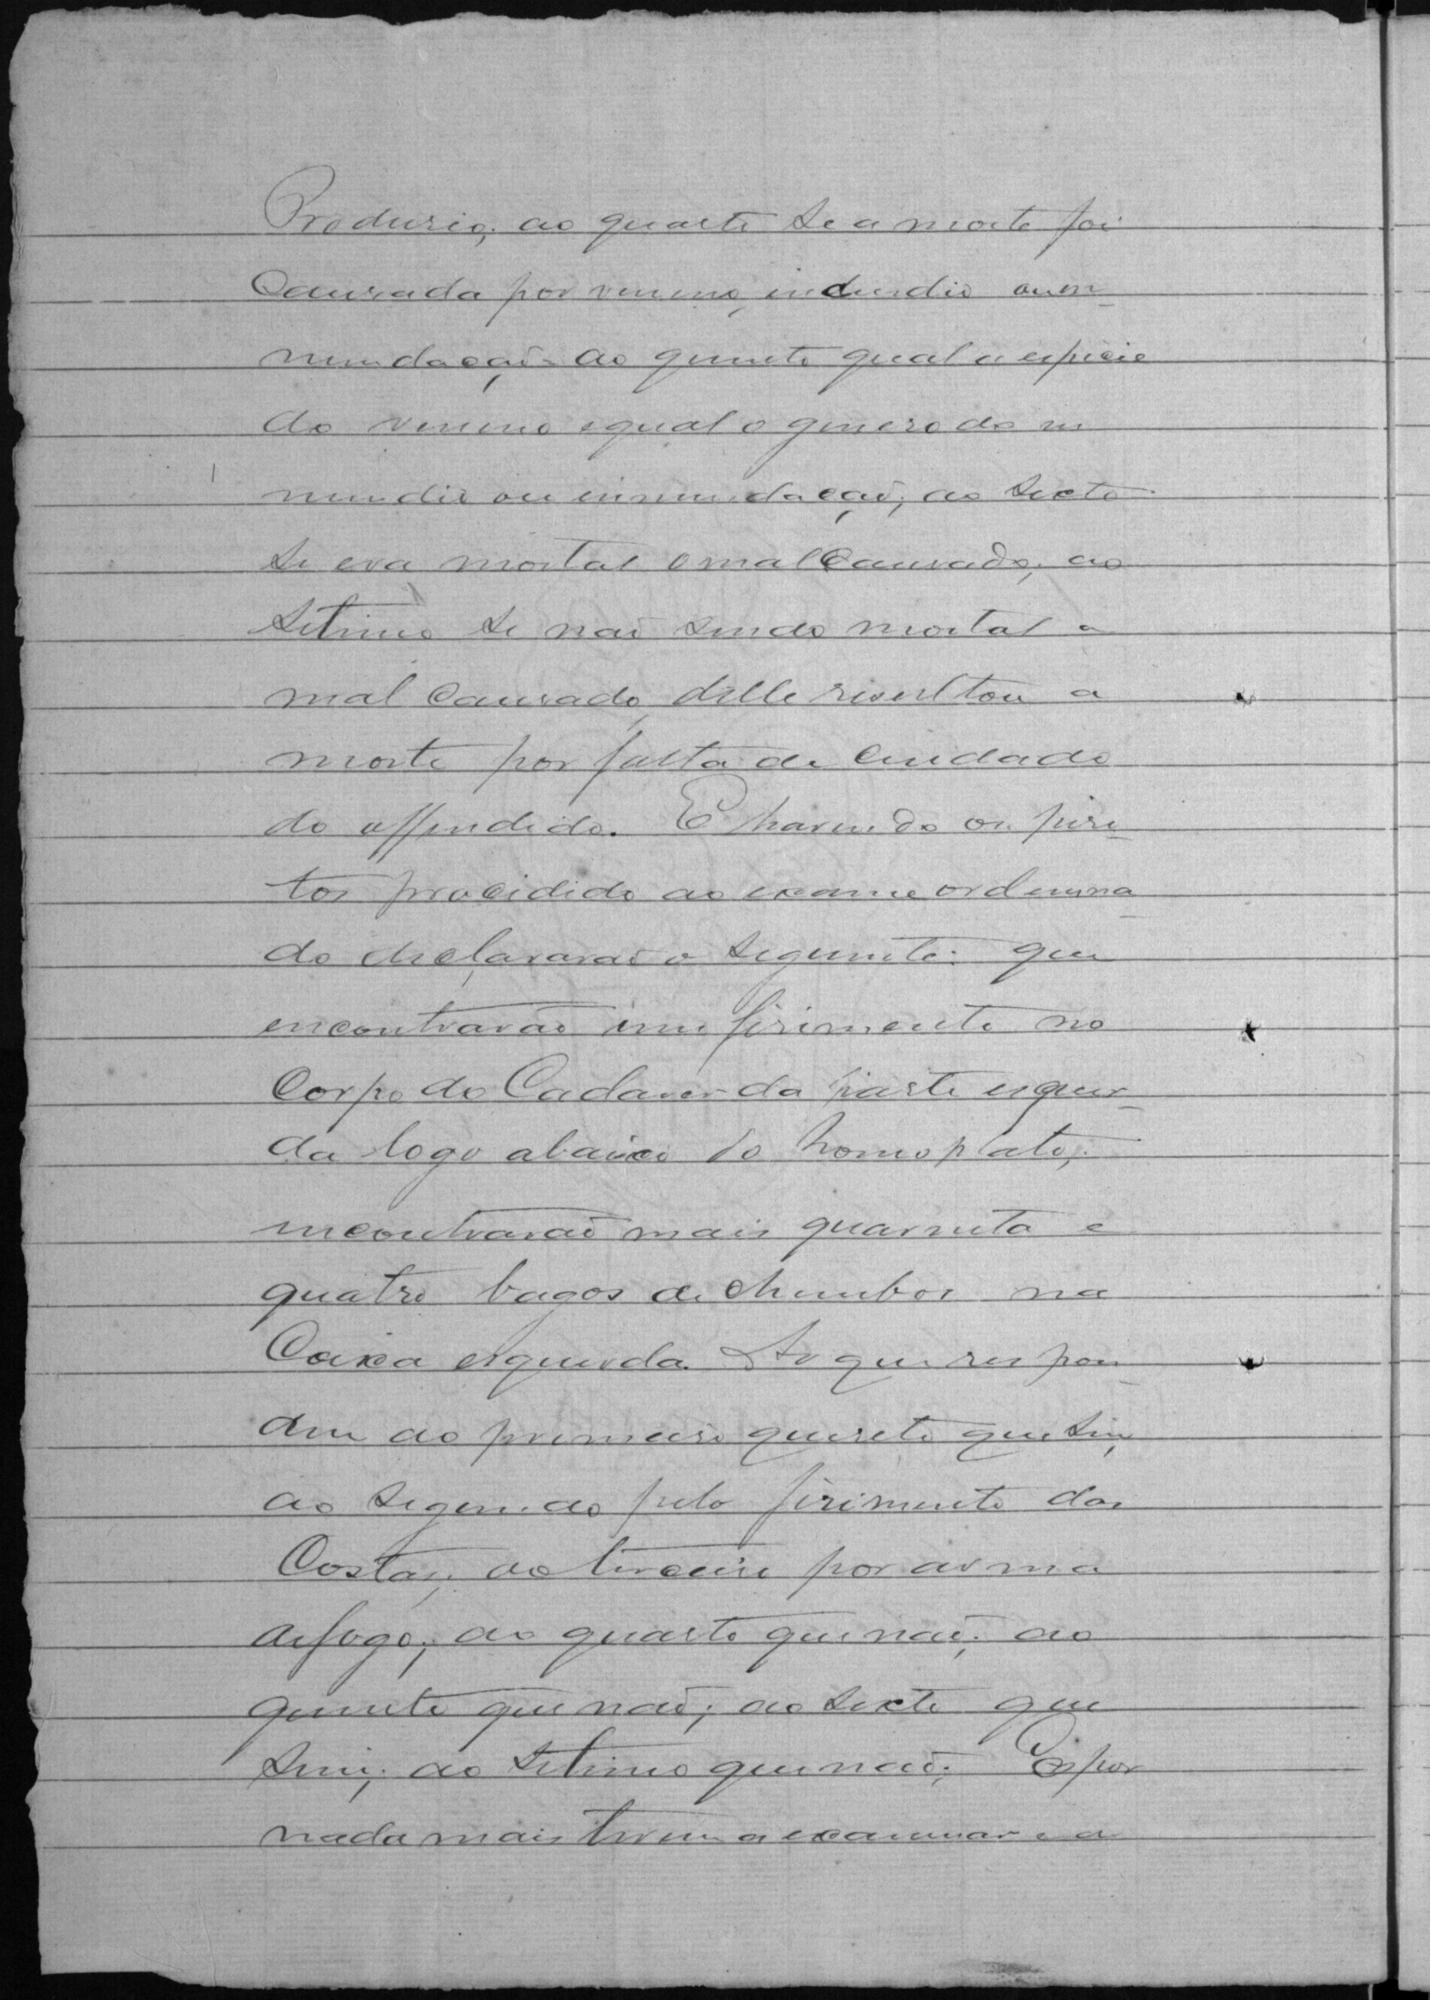 Produzio; ao quarto se a morte foi
Causada por veneno, incendio ou in-
nundação ao quinto qual a especie
do veneno e qual o genero do in
cendio ou innundação; ao sexto
se era mortal o mal Causado; ao
Setimo se não sendo mortal o
mal Causado, delle resultou a
morte por falta de Cuidado
do offendido. E havendo os piri-
tos procidido ao exame ordena-
do declararão o seguinte: que
encontrarão um ferimento no
Corpo do Cadaver da parte esquer-
da logo abaixo do homoplato;
encontrarão mais quarenta e
quatro bagos de chumbos na
Caixa esquerda. Ao que respon-
dem ao primeiro quesito que sim,
ao segundo pelo ferimento das
Costas; ao terceiro por arma
de fogo; ao quarto que não; ao
quinto que não; ao sexto que
sim; ao setimo que não; E por
nada mais terem a examinar e a